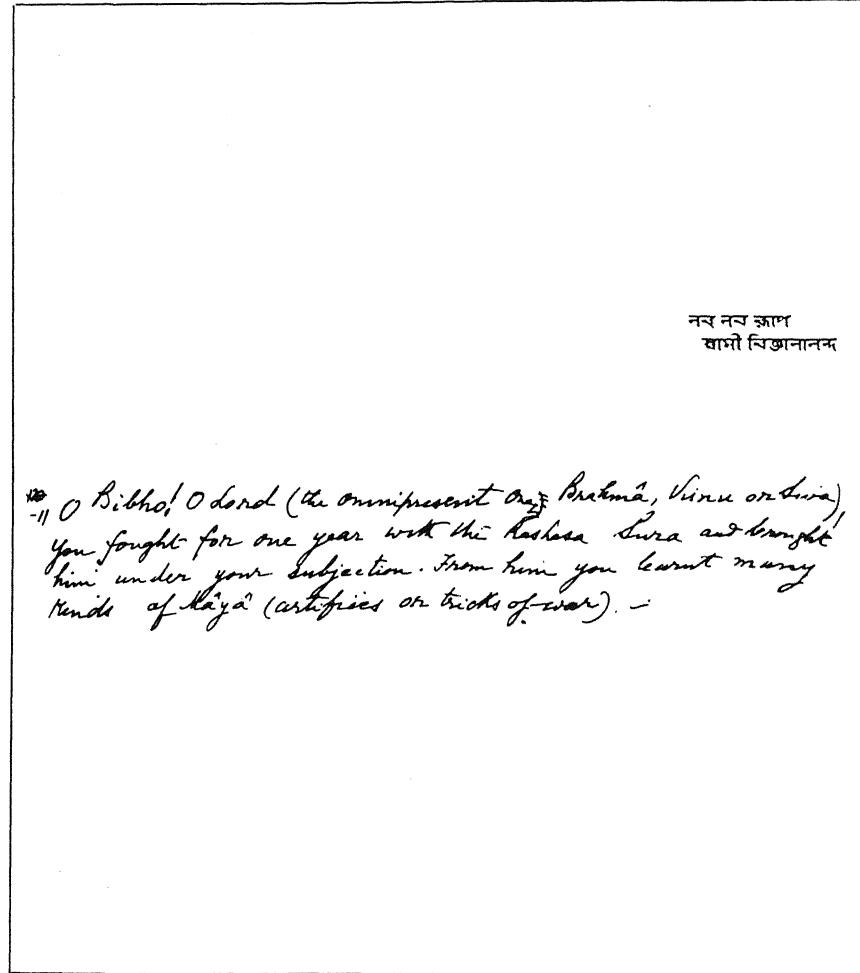 নব নব রূপে
স্বামী বিজ্ঞানানন্দ
-11 O Bibho! O Lord (the omnipresent one, Brahmâ, Visnu or Siva)!
You fought for one year with the Rashasa Sura and brought
him under your subjection. From him you learnt many
kinds of Mâyâ (artifices or tricks of war). —